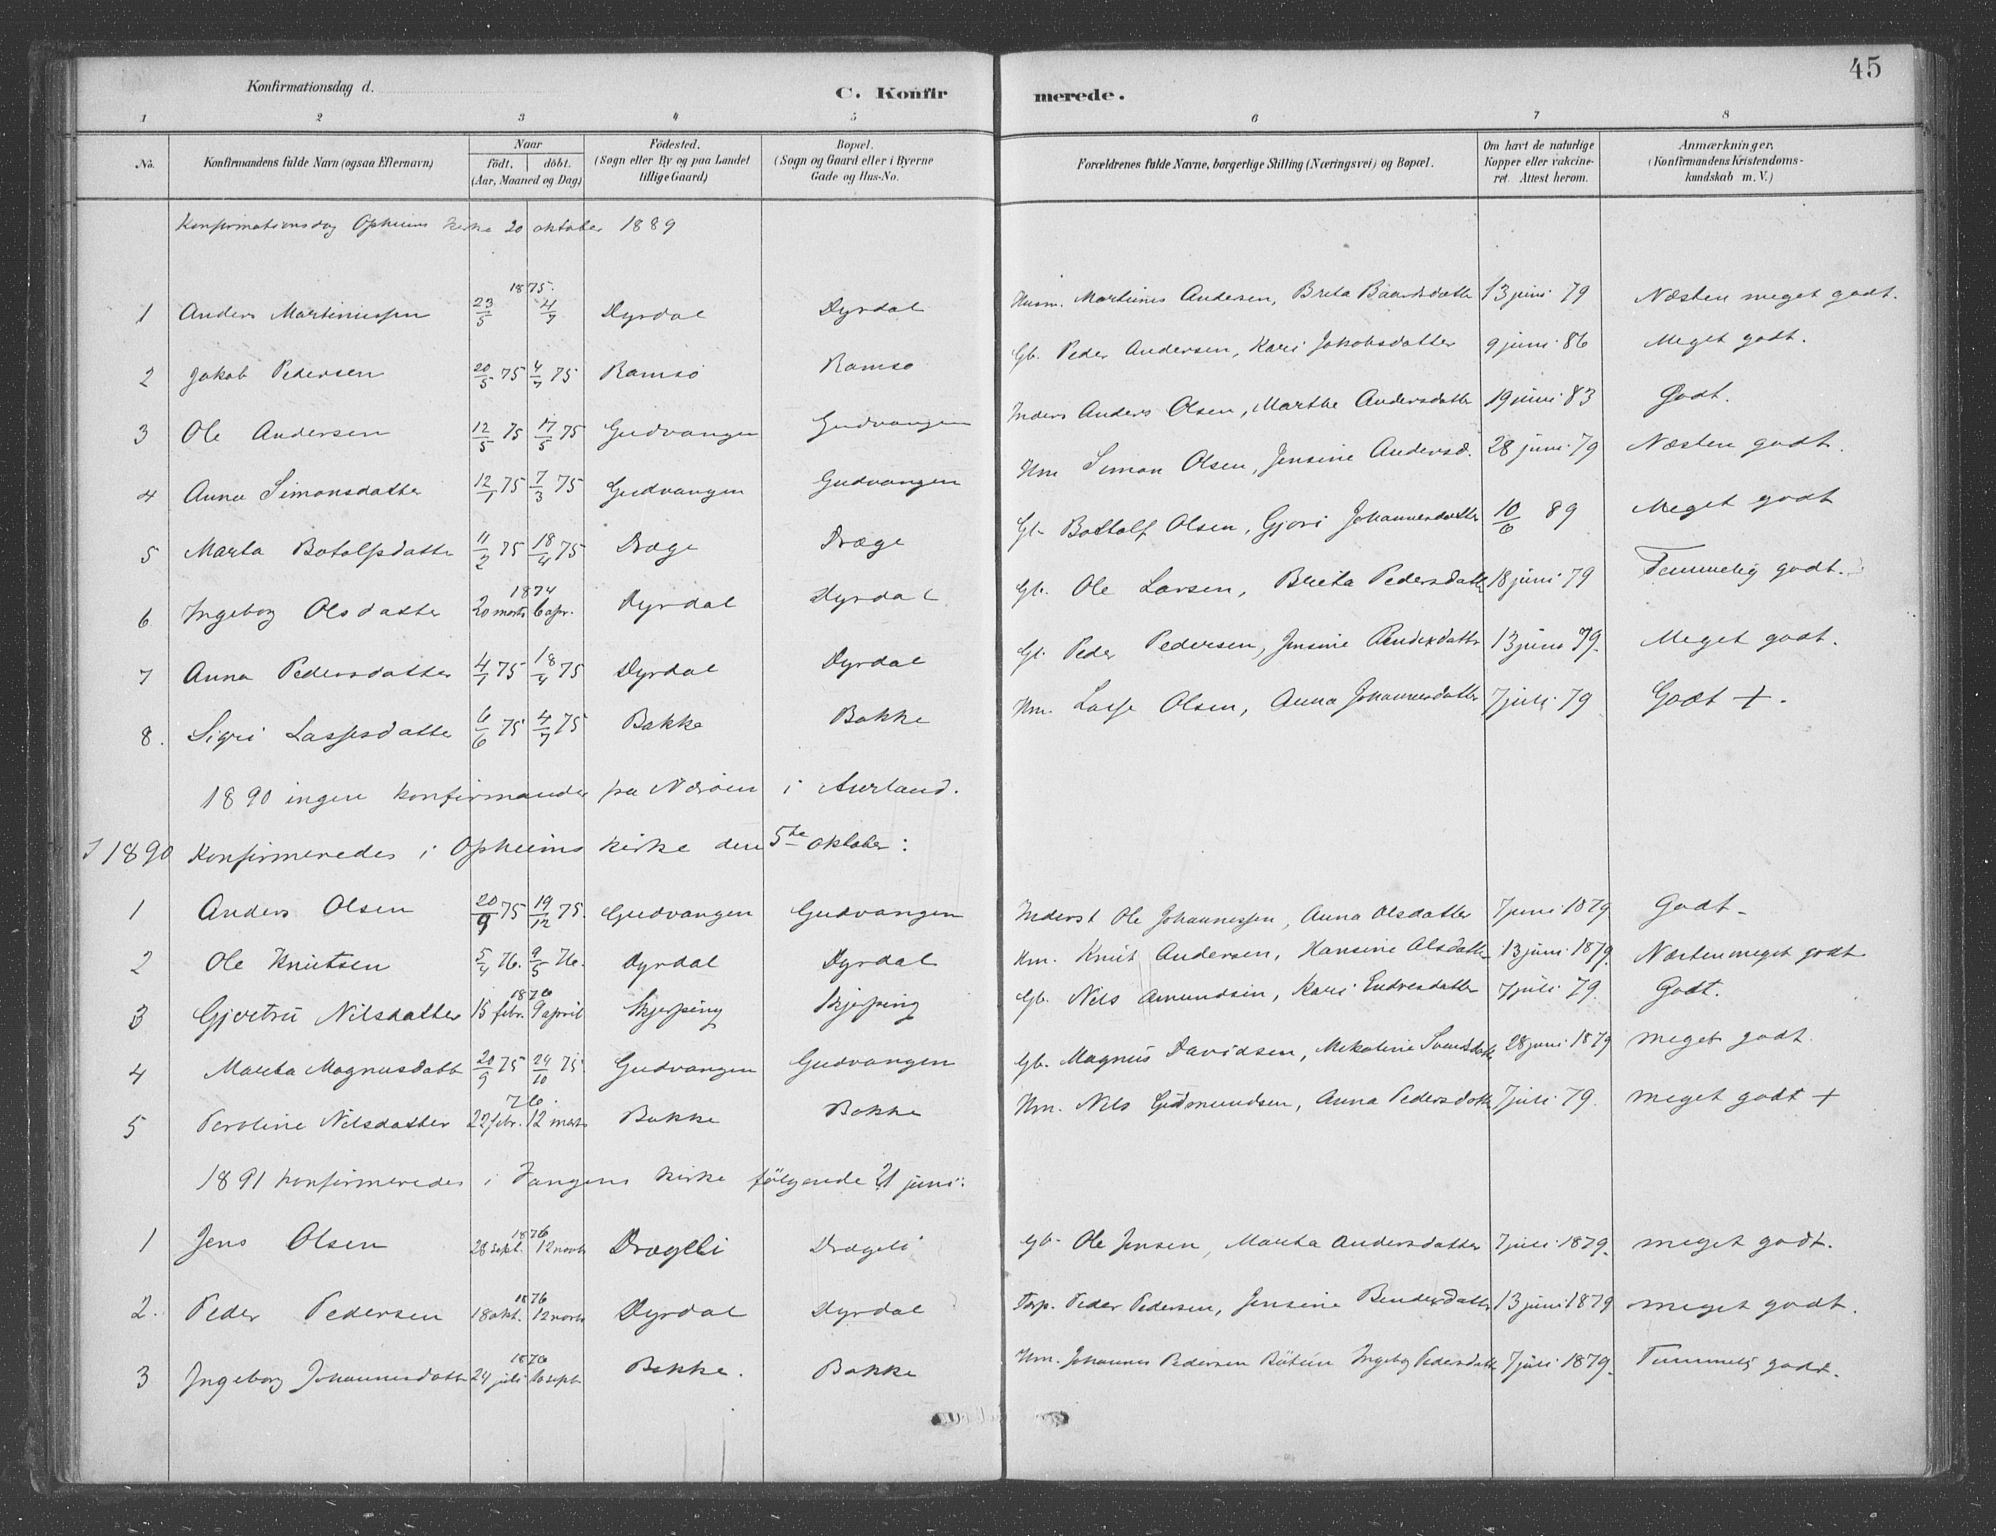 45
Konfirmationsdag d.
C. Konfirmerede.
1 2 3 4 5 6 7 8
No. Konfirmandens fulde Navn (ogsaa Efternavn) Naar födt. döbt. (Aar, Maaned og Dag) Födested. (Sogn eller By og paa Landet tillige Gaard) Bopæl. (Sogn og Gaard eller i Byerne Gade og Hus-No. Forældrenes fulde Navne, borgerlige Stilling (Næringsvei) og Bopæl. Om havt de naturlige Kopper eller vakcineret. Attest herom. Anmærkninger. (Konfirmandens Kristendomskundskab m. V.)
Konfirmationsdag Opheims kirke 20 oktober 1889
1 Anders Martinussen 1875 23/5 4/7 Dyrdal Dyrdal Husm. Martinus Andersen, Brita Baardsdatte 13 juni 79 Næsten meget godt.
2 Jakob Pedersen 20/5 75 4/7 75 Ramsö Ramsö Gb. Peder Andersen, Kari Jakobsdatter 9 juni 86 Meget godt.
3 Ole Andersen 12/5 75 17/5 75 Gudvangen Gudvangen Inders Anders Olsen, Marthe Andersdatter 19 juni 83 Godt.
4 Anna Simonsdatter 12/1 75 7/3 75 Gudvangen Gudvangen Hm Simon Olsen, Jensine Andersd. 28 juni 79 Næsten godt.
5 Marta Botolfsdatte 11/2 75 18/4 75 Dræge Dræge Gb. Bottolf Olsen, Gjori Johannesdatter 10/6 89 Meget godt
6 Ingeborg Olsdatter 1874 20 marts 6 apr. Dyrdal Dyrdal Gb. Ole Larsen, Brita Pedersdatte 18 juni 79 Temmelig godt.
7 Anna Pedersdatter 4/1 75 18/4 75 Dyrdal Dyrdal Gb. Peder Pedersen, Jensine Bendixdatte 13 juni 79. Meget godt.
8. Sigri Lassesdatte 6/6 75 4/7 75 Bakke Bakke Hm. Lasse Olsen, Anna Johannesdatter 7 juli 79 Godt +.
1890 ingen konfirmander fra Nærøen i Aurland.
I 1890 Konfirmeredes i Opheims kirke den 5te oktober:
1 Anders Olsen 20/9 75 19/12 75. Gudvangen Gudvangen Inderst Ole Johannessen, Anna Olsdatter 7 juni 1879 Godt.
2 Ole Knutsen 5/4 76. 9/5 76. Dyrdal Dyrdal Hm. Knut Andersen, Hansine Olsdatte 13 juni 1879. Næsten meget godt
3 Gjertru Nilsdatter 1876 15 febr. 9 april Skjerping Skjerping Gb. Nils Amundsen, Kari Endresdatter 7 juli 79. Godt.
4 Marta Magnusdatt 20/9 75 24/10 75. Gudvangen Gudvangen Gb. Magnus Davidsen, Mikaline Svensdatte 28 juni 1879 meget godt.
5 Peroline Nilsdatter 76. 22 febr. 12 marts Bakke Bakke Hm. Nils Gudmundsen, Anna Pedersdatte 7 juli 79. meget godt +
1891 konfirmeredes i Vangens kirke fölgende 21 juni:
1 Jens Olsen 1876 28 sept. 12 novb Drægeli Drægeli Gb. Ole Jensen, Marta Andersdatter 7 juli 1879. meget godt.
2. Peder Pedersen 1876 18 okt. 12 novb Dyrdal Dyrdal Peder Pedersen, Jensine Bendixdatte 13 juni 1879 meget godt.
3 Ingeborg Johannesdatt 1876 24 juli 10 sept Bakke. Bakke Hm. Johannes Pedersen Ingeborg Pedersdatte 7 juli 1879. Temmelig godt.